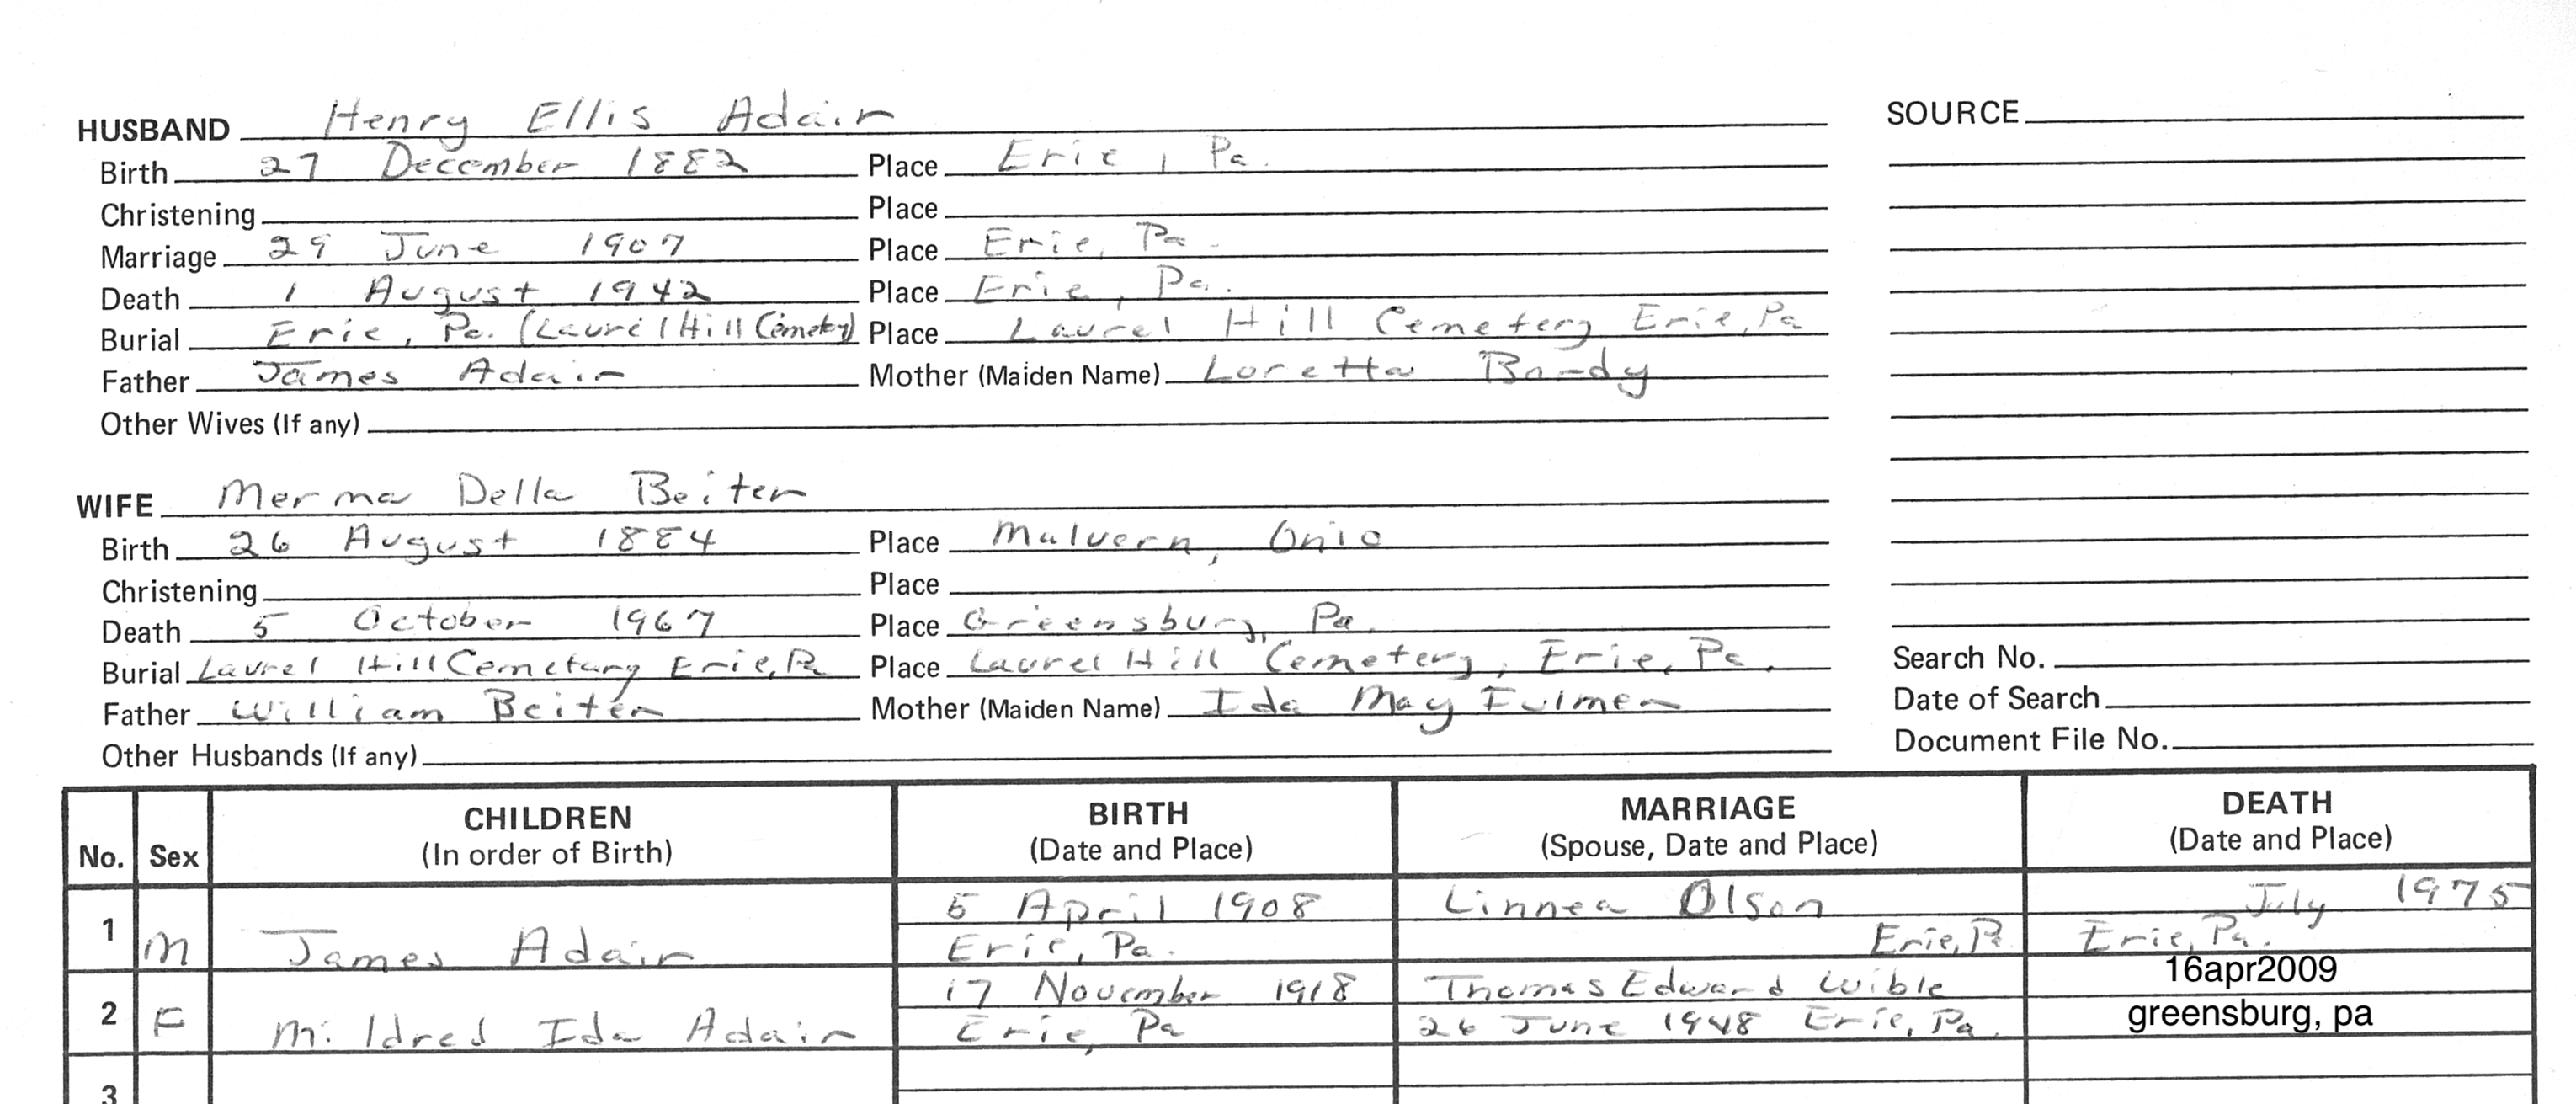 HUSBAND Henry Ellis Adair SOURCE
Birth 27 December 1882 Place Erie, Pa.
Christening Place
Marriage 29 June 1907 Place Erie, Pa.
Death 1 August 1942 Place Erie, Pa.
Burial Erie, Pa. (Laurel Hill Cemetery) Place Laurel Hill Cemetery Erie, Pa
Father James Adair Mother (Maiden Name) Loretta
Other Wives (If any)
WIFE Merma Della Beiter
Birth 26 August 1884 Place Malvern, Ohio
Christening Place
Death 5 October 1967 Place Greensburg, Pa.
Burial Laurel Hill Cemetary Erie, Pa Place Laurel Hill Cemetery, Erie, Pa. Search No.
Father William Beiter Mother (Maiden Name) Ida May Fulmer Date of Search
Other Husbands (If any) Document File No.
No. Sex CHILDREN (In order of Birth) BIRTH (Date and Place) MARRIAGE (Spouse, Date and Place) DEATH (Date and Place)
1 M James Adair 5 April 1908 Linnea Olson July 1975
Erie, Pa. Erie, Pa Erie, Pa.
2 F Mildred Ida Adair 17 November 1918 Thomas Edward Wible 16apr2009
Erie, Pa 26 June 1948 Erie, Pa. greensburg, pa
3